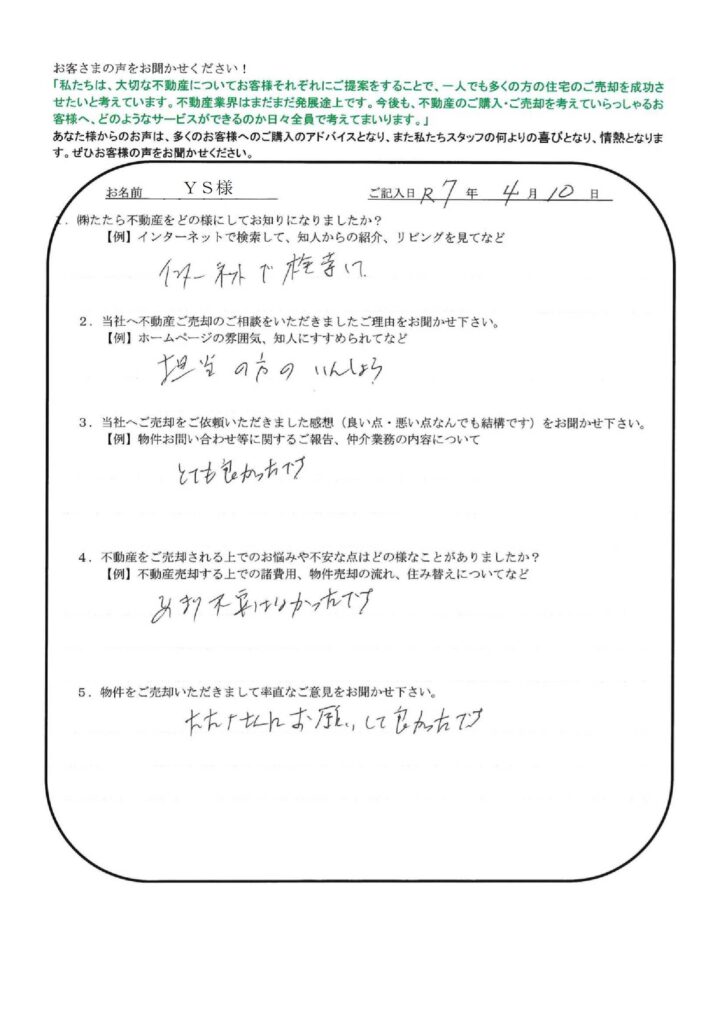 お客さまの声をお聞かせください！
「私たちは、大切な不動産についてお客様それぞれにご提案をすることで、一人でも多くの方の住宅のご売却を成功さ
せたいと考えています。不動産業界はまだまだ発展途上です。今後も、不動産のご購入・ご売却を考えていらっしゃるお
客様へ、どのようなサービスができるのか日々全員で考えてまいります。」
あなた様からのお声は、多くのお客様へのご購入のアドバイスとなり、また私たちスタッフの何よりの喜びとなり、情熱となりま
す。ぜひお客様の声をお聞かせください。
お名前 YS様 ご記入日 R7 年 4 月 10 日
1．㈱たたら不動産をどの様にしてお知りになりましたか？
【例】インターネットで検索して、知人からの紹介、リビングを見てなど
インターネットで検索して
2．当社へ不動産ご売却のご相談をいただきましたご理由をお聞かせ下さい。
【例】ホームページの雰囲気、知人にすすめられてなど
担当の方のいんしょう
3．当社へご売却をご依頼いただきました感想（良い点・悪い点なんでも結構です）をお聞かせ下さい。
【例】物件お問い合わせ等に関するご報告、仲介業務の内容について
とても良かったです
4．不動産をご売却される上でのお悩みや不安な点はどの様なことがありましたか？
【例】不動産売却する上での諸費用、物件売却の流れ、住み替えについてなど
あまり不安はなかったです
5．物件をご売却いただきまして率直なご意見をお聞かせ下さい。
たたらさんにお願いして良かったです